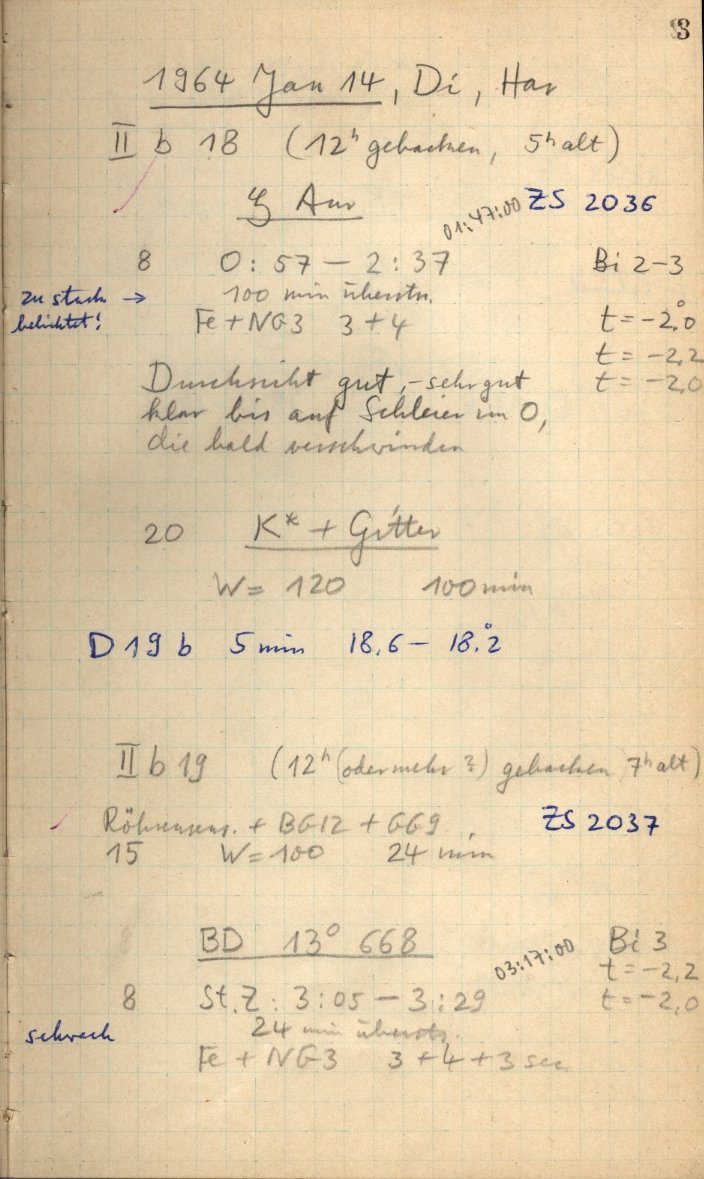 3
1964 Jan 14, Di, Har
II b 18 (12ʰ gebacken, 5ʰ alt)
ζ Aur 01:47:00 ZS 2036
8 0:57 – 2:37 Bi 2–3
zu stark → 100 min überstr.
belichtet! Fe + NG3 3+4 t = –2,°0
t = –2,2
Durchsicht gut, – sehr gut t = –2,0
klar bis auf Schleier im O,
die bald verschwinden
20 K* + Gitter
W = 120 100 min
D 19 b 5 min 18,6 – 18,°2
II b 19 (12ʰ (oder mehr?) gebacken, 7ʰ alt)
Röhrensens. + BG12 + GG9 ZS 2037
15 W = 100 24 min
BD 13° 668 03:17:00 Bi 3
t = –2,2
8 St.Z: 3:05 – 3:29 t = –2,0
schwach 24 min überstr.
Fe + NG3 3+4+3 sec